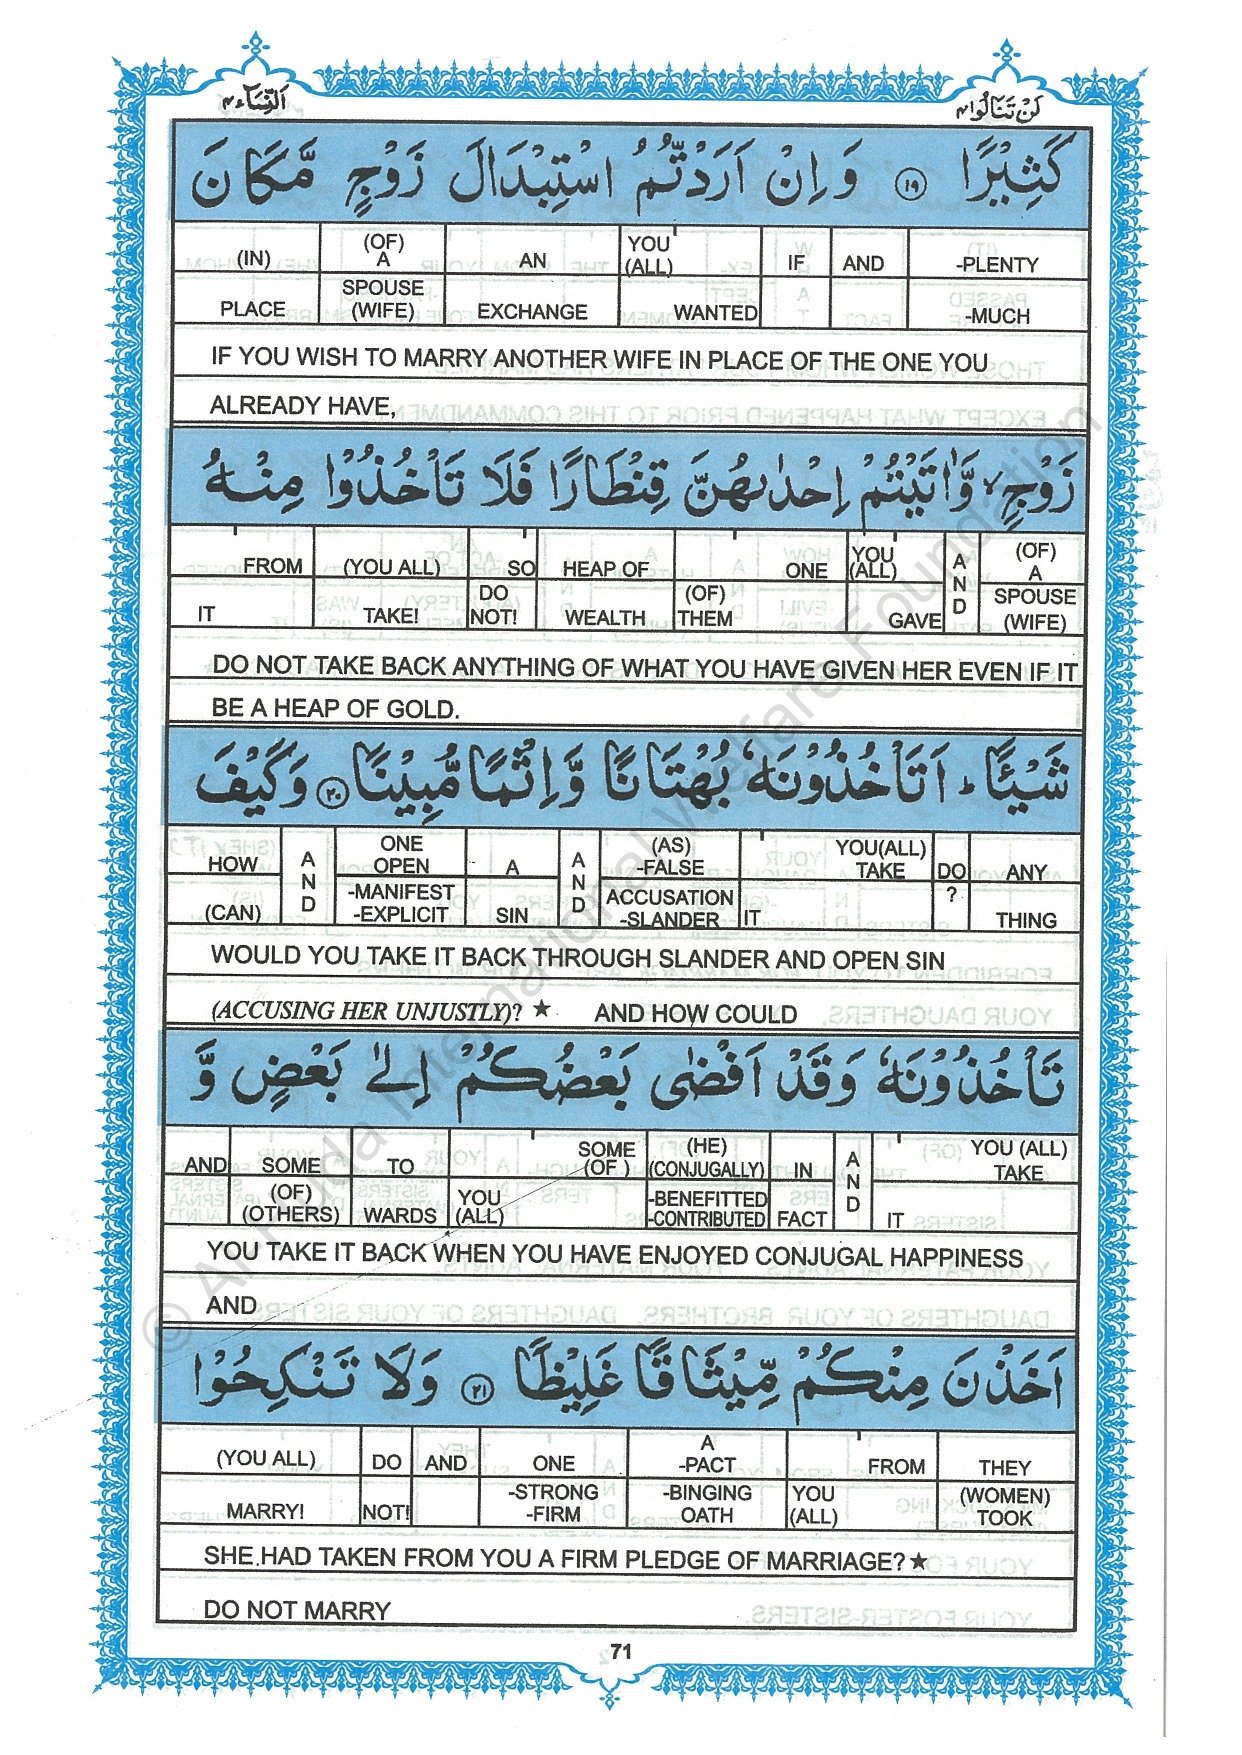 اَلنِّسَآء ٤
لَنْ تَنَالُوا ٤
كَثِيْرًا ۝١٩ وَ اِنْ اَرَدْتُّمُ اسْتِبْدَالَ زَوْجٍ مَّكَانَ
(IN) (OF) A AN YOU (ALL) IF AND -PLENTY
PLACE SPOUSE (WIFE) EXCHANGE WANTED -MUCH
IF YOU WISH TO MARRY ANOTHER WIFE IN PLACE OF THE ONE YOU
ALREADY HAVE,
زَوْجٍ ۙ وَّاٰتَيْتُمْ اِحْدٰىهُنَّ قِنْطَارًا فَلَا تَاْخُذُوْا مِنْهُ
FROM (YOU ALL) SO HEAP OF ONE YOU (ALL) AND (OF) A
IT TAKE! DO NOT! WEALTH (OF) THEM GAVE SPOUSE (WIFE)
DO NOT TAKE BACK ANYTHING OF WHAT YOU HAVE GIVEN HER EVEN IF IT
BE A HEAP OF GOLD.
شَيْـًٔا ؕ اَتَاْخُذُوْنَهٗ بُهْتَانًا وَّ اِثْمًا مُّبِيْنًا ۝٢٠ وَكَيْفَ
HOW AND ONE OPEN A AND (AS) -FALSE YOU(ALL) TAKE DO ANY
(CAN) -MANIFEST -EXPLICIT SIN ACCUSATION -SLANDER IT ? THING
WOULD YOU TAKE IT BACK THROUGH SLANDER AND OPEN SIN
(ACCUSING HER UNJUSTLY)? ★ AND HOW COULD
تَاْخُذُوْنَهٗ وَ قَدْ اَفْضٰى بَعْضُكُمْ اِلٰى بَعْضٍ وَّ
AND SOME TO SOME (OF ) (HE) (CONJUGALLY) IN AND YOU (ALL) TAKE
(OF) (OTHERS) WARDS YOU (ALL) -BENEFITTED -CONTRIBUTED FACT IT
YOU TAKE IT BACK WHEN YOU HAVE ENJOYED CONJUGAL HAPPINESS
AND
اَخَذْنَ مِنْكُمْ مِّيْثَاقًا غَلِيْظًا ۝٢١ وَلَا تَنْكِحُوْا
(YOU ALL) DO AND ONE A -PACT FROM THEY
MARRY! NOT! -STRONG -FIRM -BINGING OATH YOU (ALL) (WOMEN) TOOK
SHE.HAD TAKEN FROM YOU A FIRM PLEDGE OF MARRIAGE? ★
DO NOT MARRY
71
© Al-Huda International Welfare Foundation